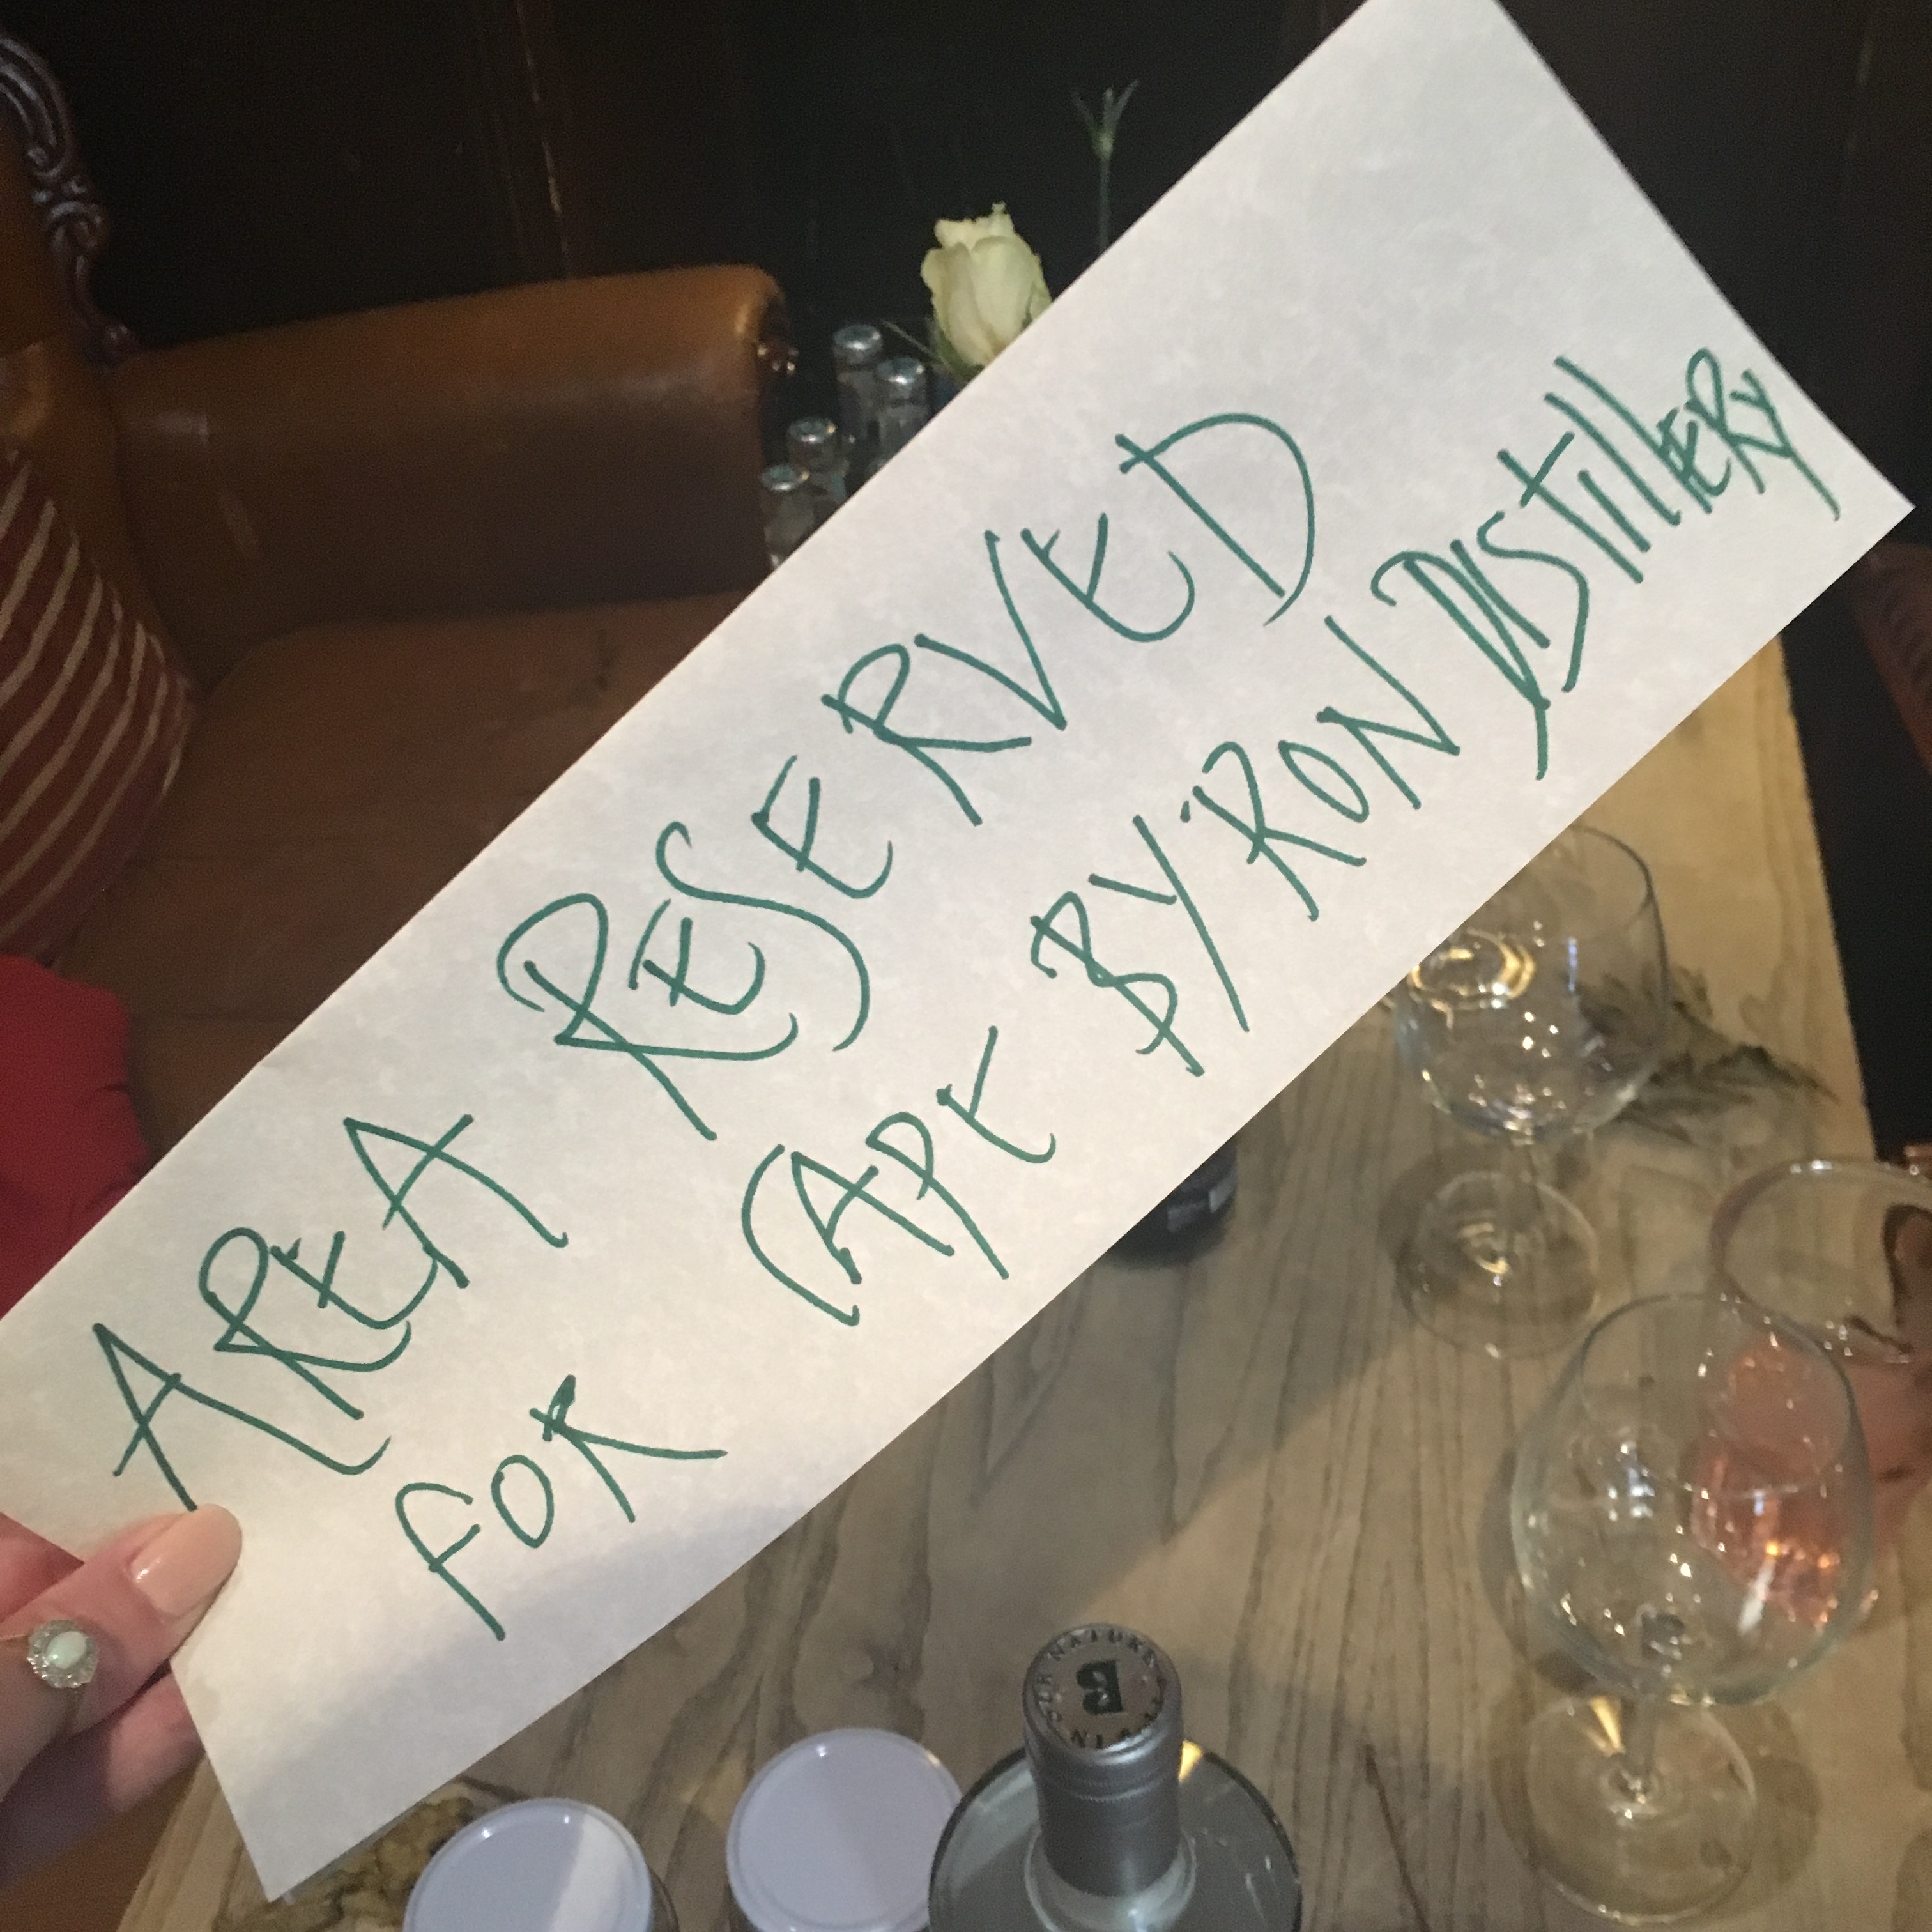 AREA RESERVED
FOR CAPE BYRON DISTILLERY
B